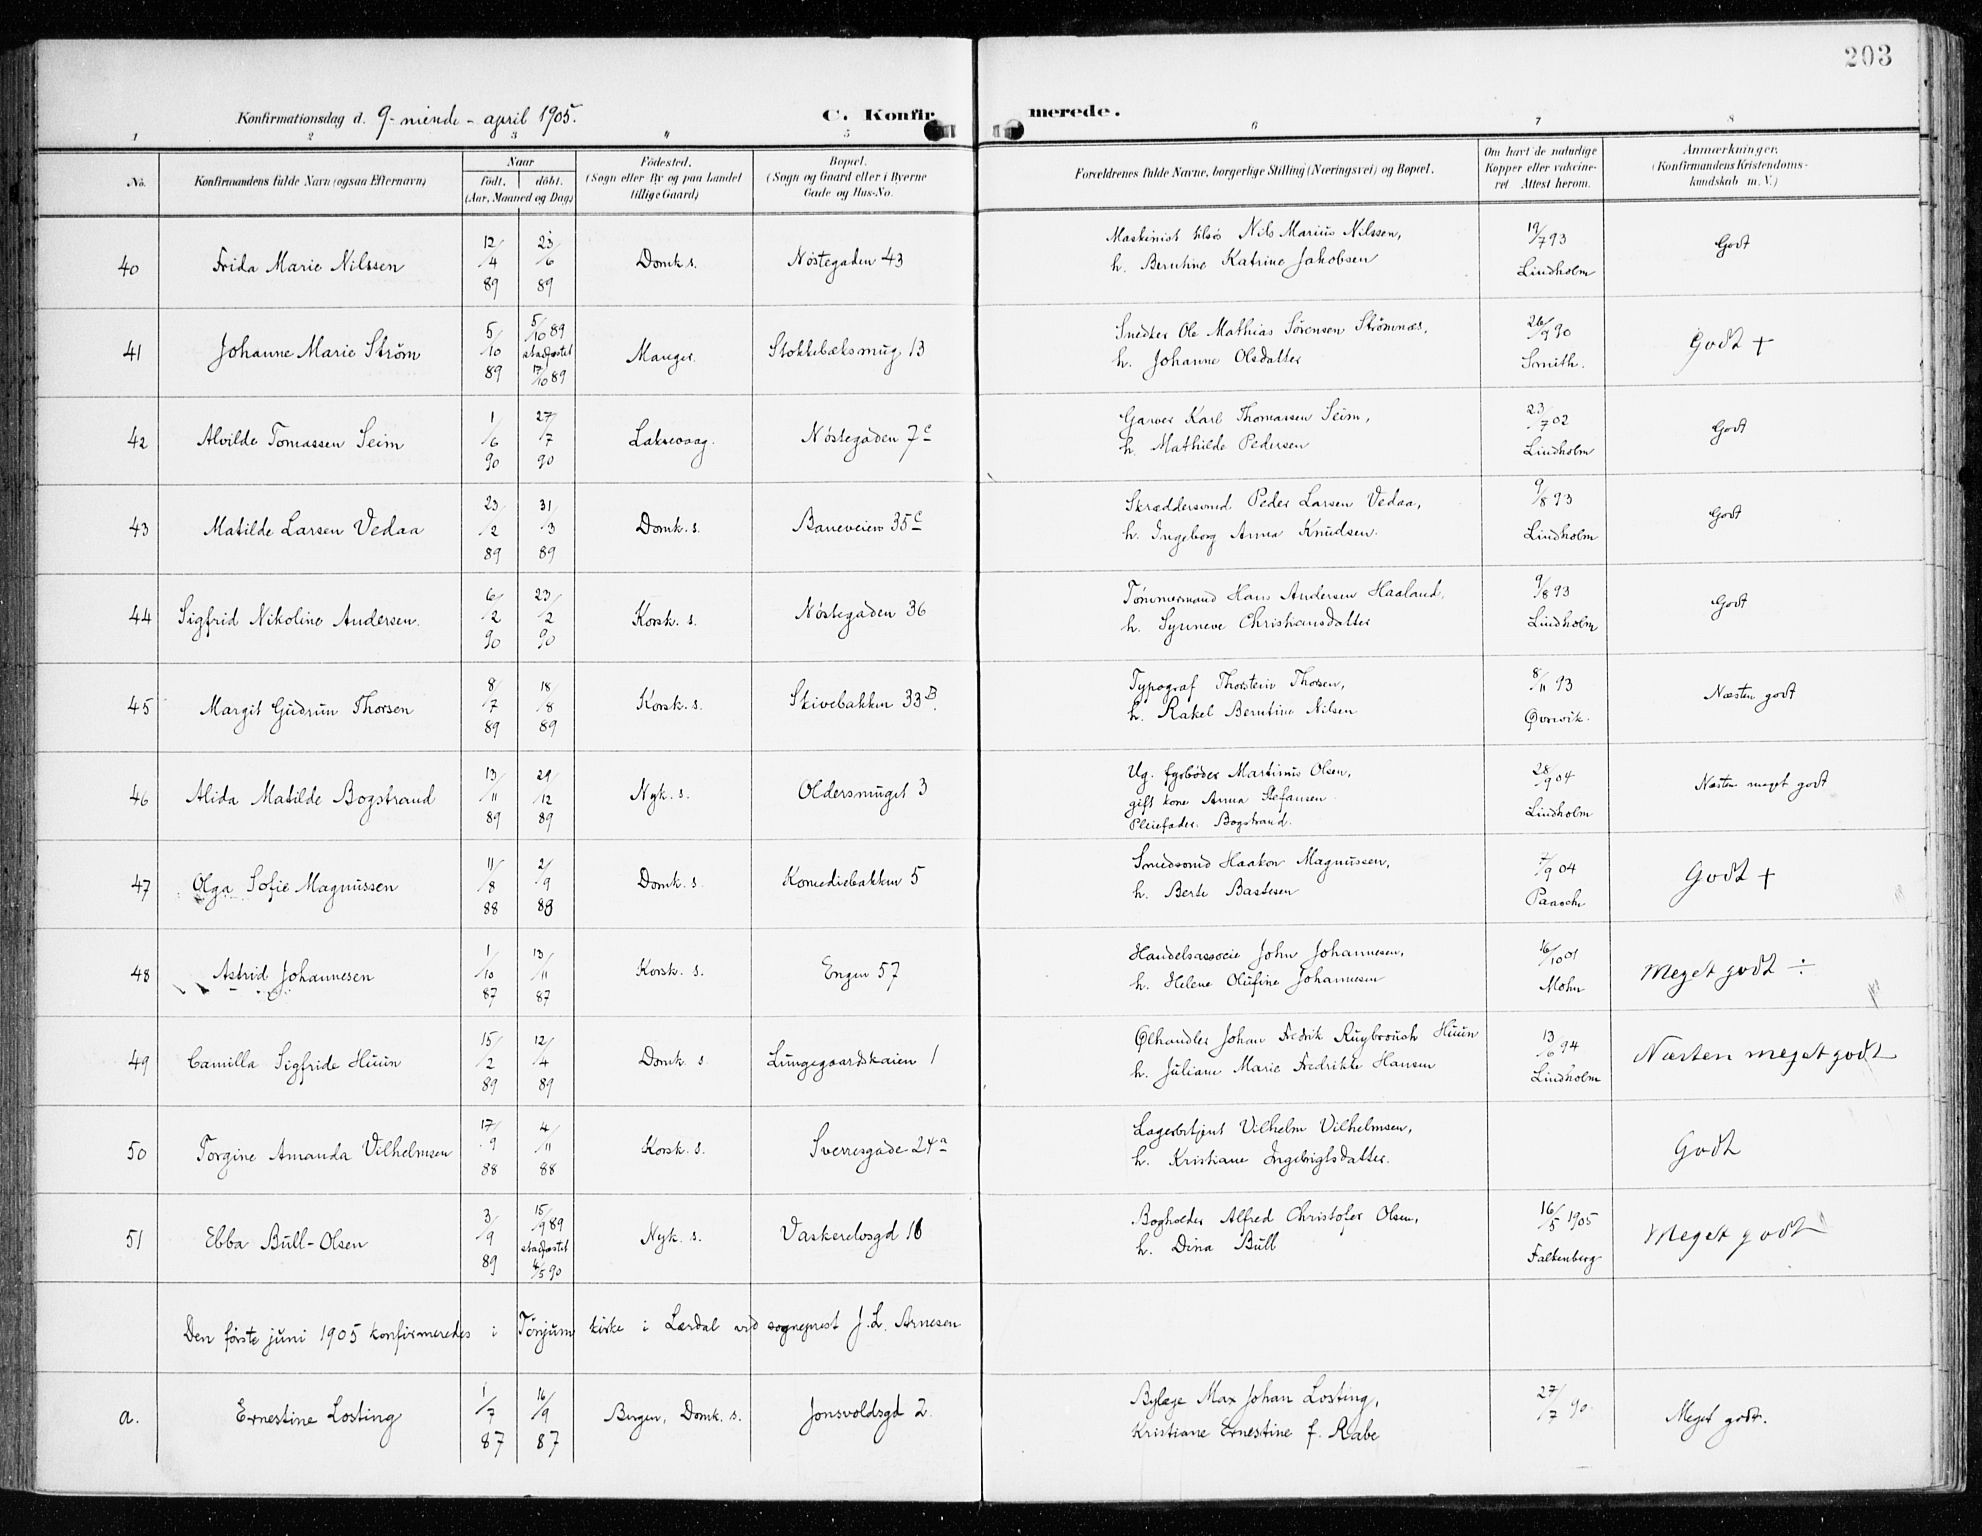 203
Konfirmationsdag d. 9-niende-april 1905.
C. Konfirmerede.
1 2 3 " 5 6 7 8
No. Konfirmandens fulde Navn (ogsaa Efternavn) Naar Födested. Bopæl. Forældrenes fulde Navne, borgerlige Stilling (Næringsvei) og Bopæl. Om havt de naturlige Anmærkninger.
födt. döbt. (Sogn eller By og paa Landet (Sogn og Gaard eller i Byerne Kopper eller vakcine- (Konfirmandens Kristendoms-
(Aar, Maaned og Dag) tillige Gaard) Gade og Hus-No. ret Attest herom. kundskab m. V.)
40 Frida Marie Nilssen 12/4 89 23/6 89 Domk. s. Nöstegaden 43 Maskinist Nils Marius Nilssen, 19/7 93 Godt
h. Berntine Katrine Jakobsen Lindholm
41 Johanne Marie Ström 5/10 89 5/10 89 stadfæstet 17/10 89 Manger. Stokkebæksmug 13 Snedker Ole Mathias Sörensen Strömnæs, 26/9 90 Godt +
h. Johanne Olsdatter Smith.
42 Alvilde Tomassen Seim 1/6 90 27/7 90 Laksevaag. Nöstegaden 7c Garver Karl Thomassen Seim, 23/7 02 Godt
h. Mathilde Pedersen Lindholm
43 Matilde Larsen Vedaa 23/2 89 31/3 89 Domk. s. Baneveien 35c Skræddersvend Peder Larsen Vedaa, 9/8 93 Godt
h. Ingeborg Anna Knudsen. Lindholm
44 Sigfrid Nikoline Andersen. 6/2 90 23/2 90 Korsk. s. Nöstegaden 36 Tömmermand Hans Andersen Haaland, 9/8 93 Godt
h. Synneve Christiansdatter Lindholm
45 Margit Gudrun Thorsen 8/7 89 18/8 89 Korsk. s. Skivebakken 33B. Typograf Thorstein Thorsen, 8/11 93 Næsten godt
h. Rakel Berntine Nilsen Qvorvik.
46 Alida Matilde Bogstrand 13/11 89 29/12 89 Nyk. s. Oldersmuget 3 Ug. fyrböder Martinus Olsen, 28/9 04 Næsten meget godt
gift kone Anna Stefansen Lindholm
Pleiefader. Bogstrand.
47 Olga Sofie Magnussen 11/8 88 2/9 88 Domk. s. Komediebakken 5 Smedsvend Haakon Magnussen, 7/9 04 Godt +
h. Berte Bastesen Paasche
48 Astrid Johannesen 1/10 87 13/11 87 Korsk. s. Engen 57 Handelsassocie John Johannesen, 16/10 01 Meget godt ÷
h. Helene Olufine Johannesen Mohn
49 Camilla Sigfride Huun 15/2 89 12/4 89 Domk. s. Lungegaardskaien 1 Ölhandler Johan Fredrik Ruybrouch Huun 13/6 94 Næsten meget godt
h. Juliane Marie Fredrikke Hansen Lindholm
50 Torgine Amanda Vilhelmsen 17/9 88 4/11 88 Korsk. s. Sverresgade 24a Lagerbetjent Vilhelm Vilhelmsen, Godt
h. Kristiane Ingebrigtsdatter.
51 Ebba Bull-Olsen 3/9 89 15/9 89 stadfæstet 4/5 90 Nyk. s. Vaskerelvsgd 16 Bogholder Alfred Christofer Olsen, 16/5 1905 Meget godt
h. Dina Bull Falkenberg
Den förste juni 1905 konfirmeredes i Tönjum kirke i Lærdal ved sogneprest J. L. Arnesen
a. Ernestine Losting 1/7 87 16/9 87 Bergen, Domk. s. Jonsvoldsgd 2. Bylæge Max Johan Losting, 27/7 90. Meget godt.
Kristiane Ernestine f. Rabe